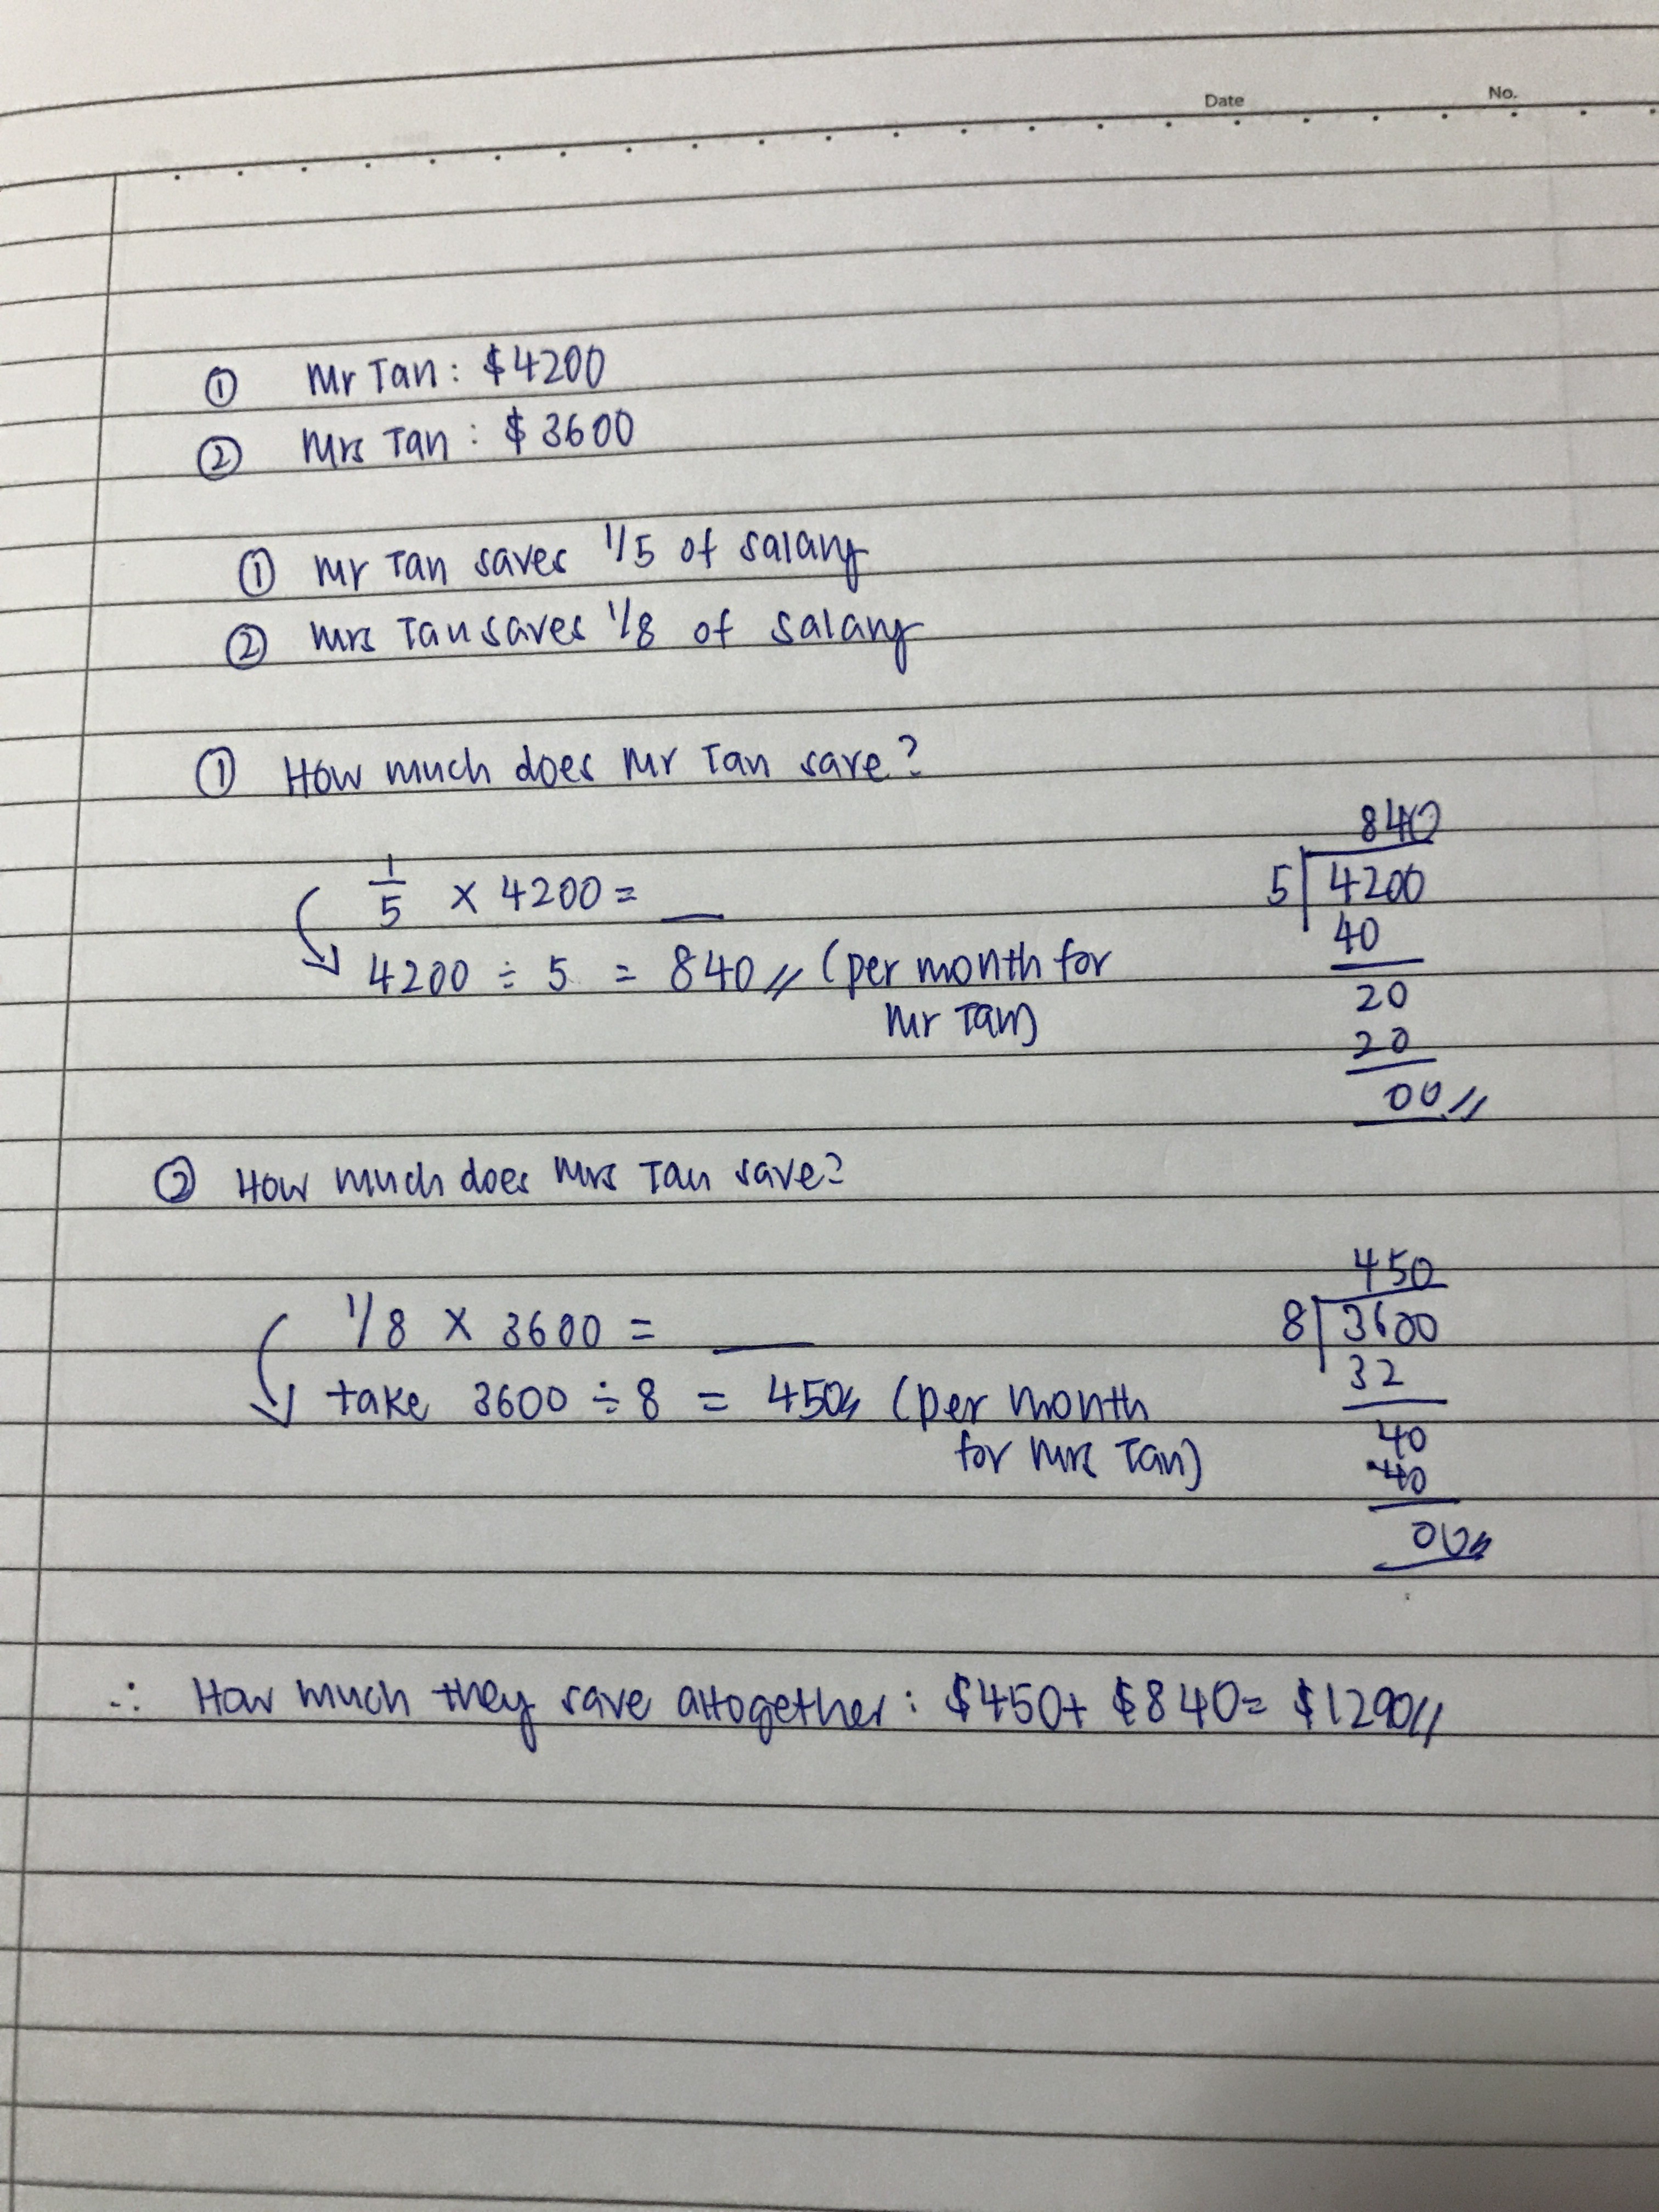 Date No.
① Mr Tan: $4200
② Mrs Tan: $3600
① Mr Tan saves 1/5 of salary
② Mrs Tan saves 1/8 of salary
① How much does Mr Tan save?
1/5 × 4200 = __
4200 ÷ 5 = 840 // (per month for
Mr Tan)
840
5 4200
40
20
20
00 //
② How much does Mrs Tan save?
1/8 × 3600 = __
take 3600 ÷ 8 = 450 // (per month
for Mrs Tan)
450
8 3600
32
40
40
00 //
∴ How much they save altogether: $450 + $840 = $1290 //